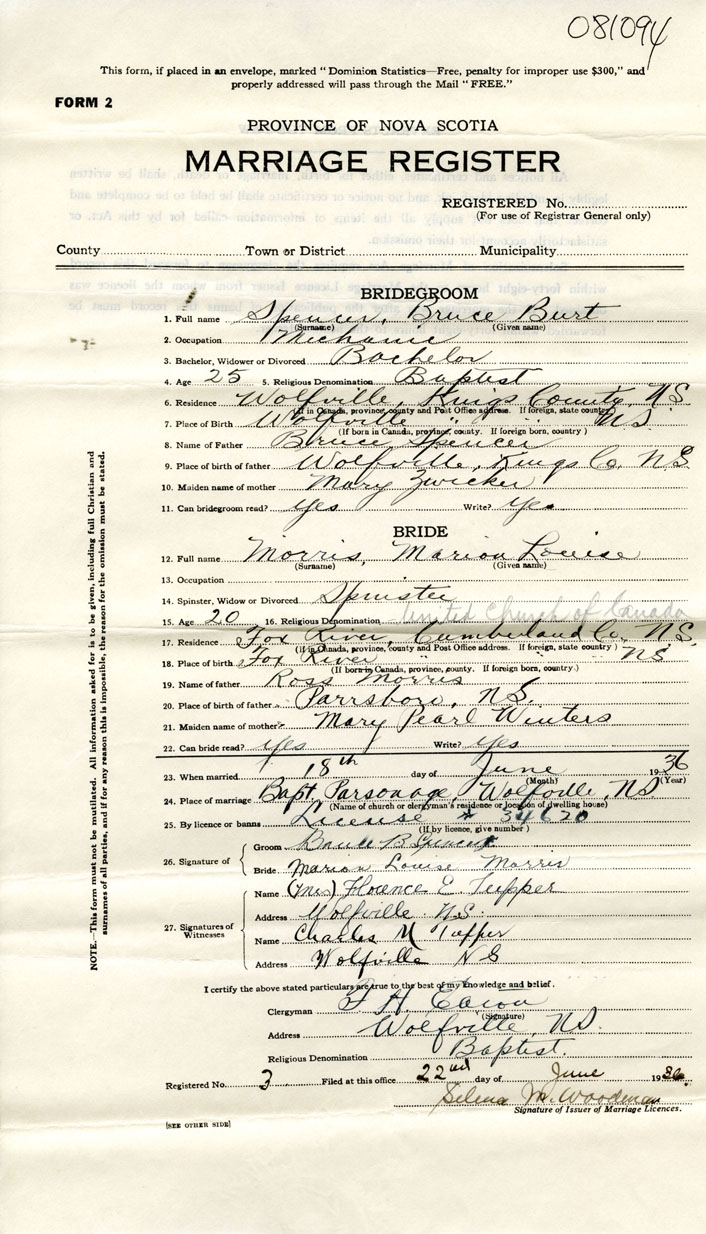 081094
This form, if placed in an envelope, marked " Dominion Statistics—Free, penalty for improper use $300," and
properly addressed will pass through the Mail " FREE."
FORM 2
PROVINCE OF NOVA SCOTIA
MARRIAGE REGISTER
REGISTERED No.
(For use of Registrar General only)
County Town or District Municipality
BRIDEGROOM
1. Full name Spencer, Bruce Burt
(Surname) (Given name)
2. Occupation Mechanic
3. Bachelor, Widower or Divorced Bachelor
4. Age 25 5. Religious Denomination Baptist
6. Residence Wolfville, Kings County, N.S.
(If in Canada, province, county and Post Office address. If foreign, state country)
7. Place of Birth Wolfville " " N.S.
(If born in Canada, province, county. If foreign born, country )
8. Name of Father Bruce Spencer
9. Place of birth of father Wolfville, Kings Co. N.S.
10. Maiden name of mother Mary Zwicker
11. Can bridegroom read? Yes Write? Yes
BRIDE
12. Full name Morris, Marion Louise
(Surname) (Given name)
13. Occupation
14. Spinster, Widow or Divorced Spinster
15. Age 20 16. Religious Denomination United Church of Canada
17. Residence Fox River, Cumberland Co., N.S.
(If in Canada, province, county and Post Office address. If foreign, state country )
18. Place of birth Fox River, " " N.S
(If born in Canada, province, county. If foreign born, country.)
19. Name of father Ross Morris
20. Place of birth of father Parrsboro, N.S.
21. Maiden name of mother Mary Pearl Winters
22. Can bride read? Yes Write? Yes
23. When married 18th day of June 1936
(Month) (Year)
24. Place of marriage Bapt. Parsonage, Wolfville, N.S
(Name of church or clergyman's residence or location of dwelling house)
25. By licence or banns License # 34620
(If by licence, give number )
26. Signature of
Groom Bruce B Spencer
Bride Marion Louise Morris
27. Signatures of Witnesses
Name (Mrs) Florence E Tupper
Address Wolfville N.S.
Name Charles M Tupper
Address Wolfville N S
I certify the above stated particulars are true to the best of my knowledge and belief.
Clergyman F. H. Eaton
(Signature)
Address Wolfville, N.S.
Religious Denomination Baptist.
Registered No. 3 Filed at this office 22nd day of June 1936
Selena M. Woodman
Signature of Issuer of Marriage Licences.
[SEE OTHER SIDE]
NOTE.—This form must not be mutilated. All information asked for is to be given, including full Christian and
surnames of all parties, and if for any reason this is impossible, the reason for the omission must be stated.